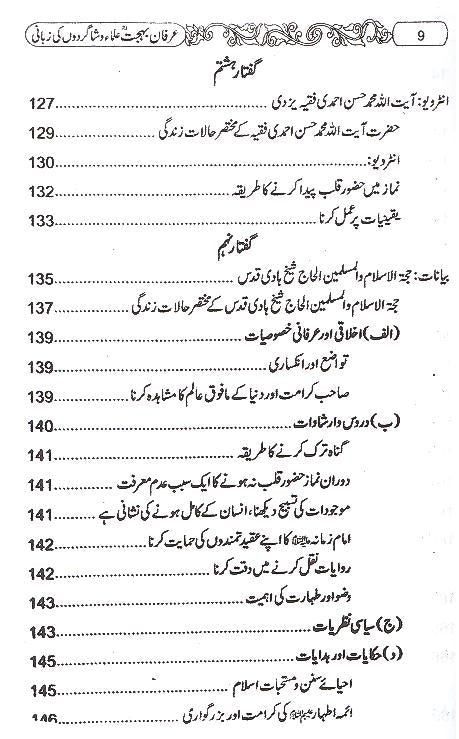 9 عرفان بہجتؒ علماء و شاگردوں کی زبانی
گفتار ہشتم
انٹرویو: آیت اللہ محمد حسن احمدی فقیہ یزدی ........ 127
حضرت آیت اللہ محمد حسن احمدی فقیہ کے مختصر حالات زندگی ........ 129
انٹرویو: ........ 130
نماز میں حضور قلب پیدا کرنے کا طریقہ ........ 132
یقینیات پر عمل کرنا ........ 133
گفتار نہم
بیانات: حجۃ الاسلام والمسلمین الحاج شیخ ہادی قدس ........ 135
حجۃ الاسلام والمسلمین الحاج شیخ ہادی قدس کے مختصر حالات زندگی ........ 137
(الف) اخلاقی اور عرفانی خصوصیات ........ 139
تواضع اور انکساری ........ 139
صاحب کرامت اور دنیا کے مافوق عالم کا مشاہدہ کرنا ........ 139
(ب) دروس و ارشادات ........ 140
گناہ ترک کرنے کا طریقہ ........ 141
دوران نماز حضور قلب نہ ہونے کا ایک سبب عدم معرفت ........ 141
موجودات کی تسبیح دیکھنا، انسان کے کامل ہونے کی نشانی ہے ........ 141
امام زمانہ علیہ السلام کا اپنے عقیدتمندوں کی حمایت کرنا ........ 142
روایات نقل کرنے میں دقت کرنا ........ 142
وضو اور طہارت کی اہمیت ........ 143
(ج) سیاسی نظریات ........ 143
(د) حکایات اور ہدایات ........ 145
احیائے سنن و مستحبات اسلام ........ 145
ائمہ اطہار علیہم السلام کی کرامت اور بزرگواری ........ 146